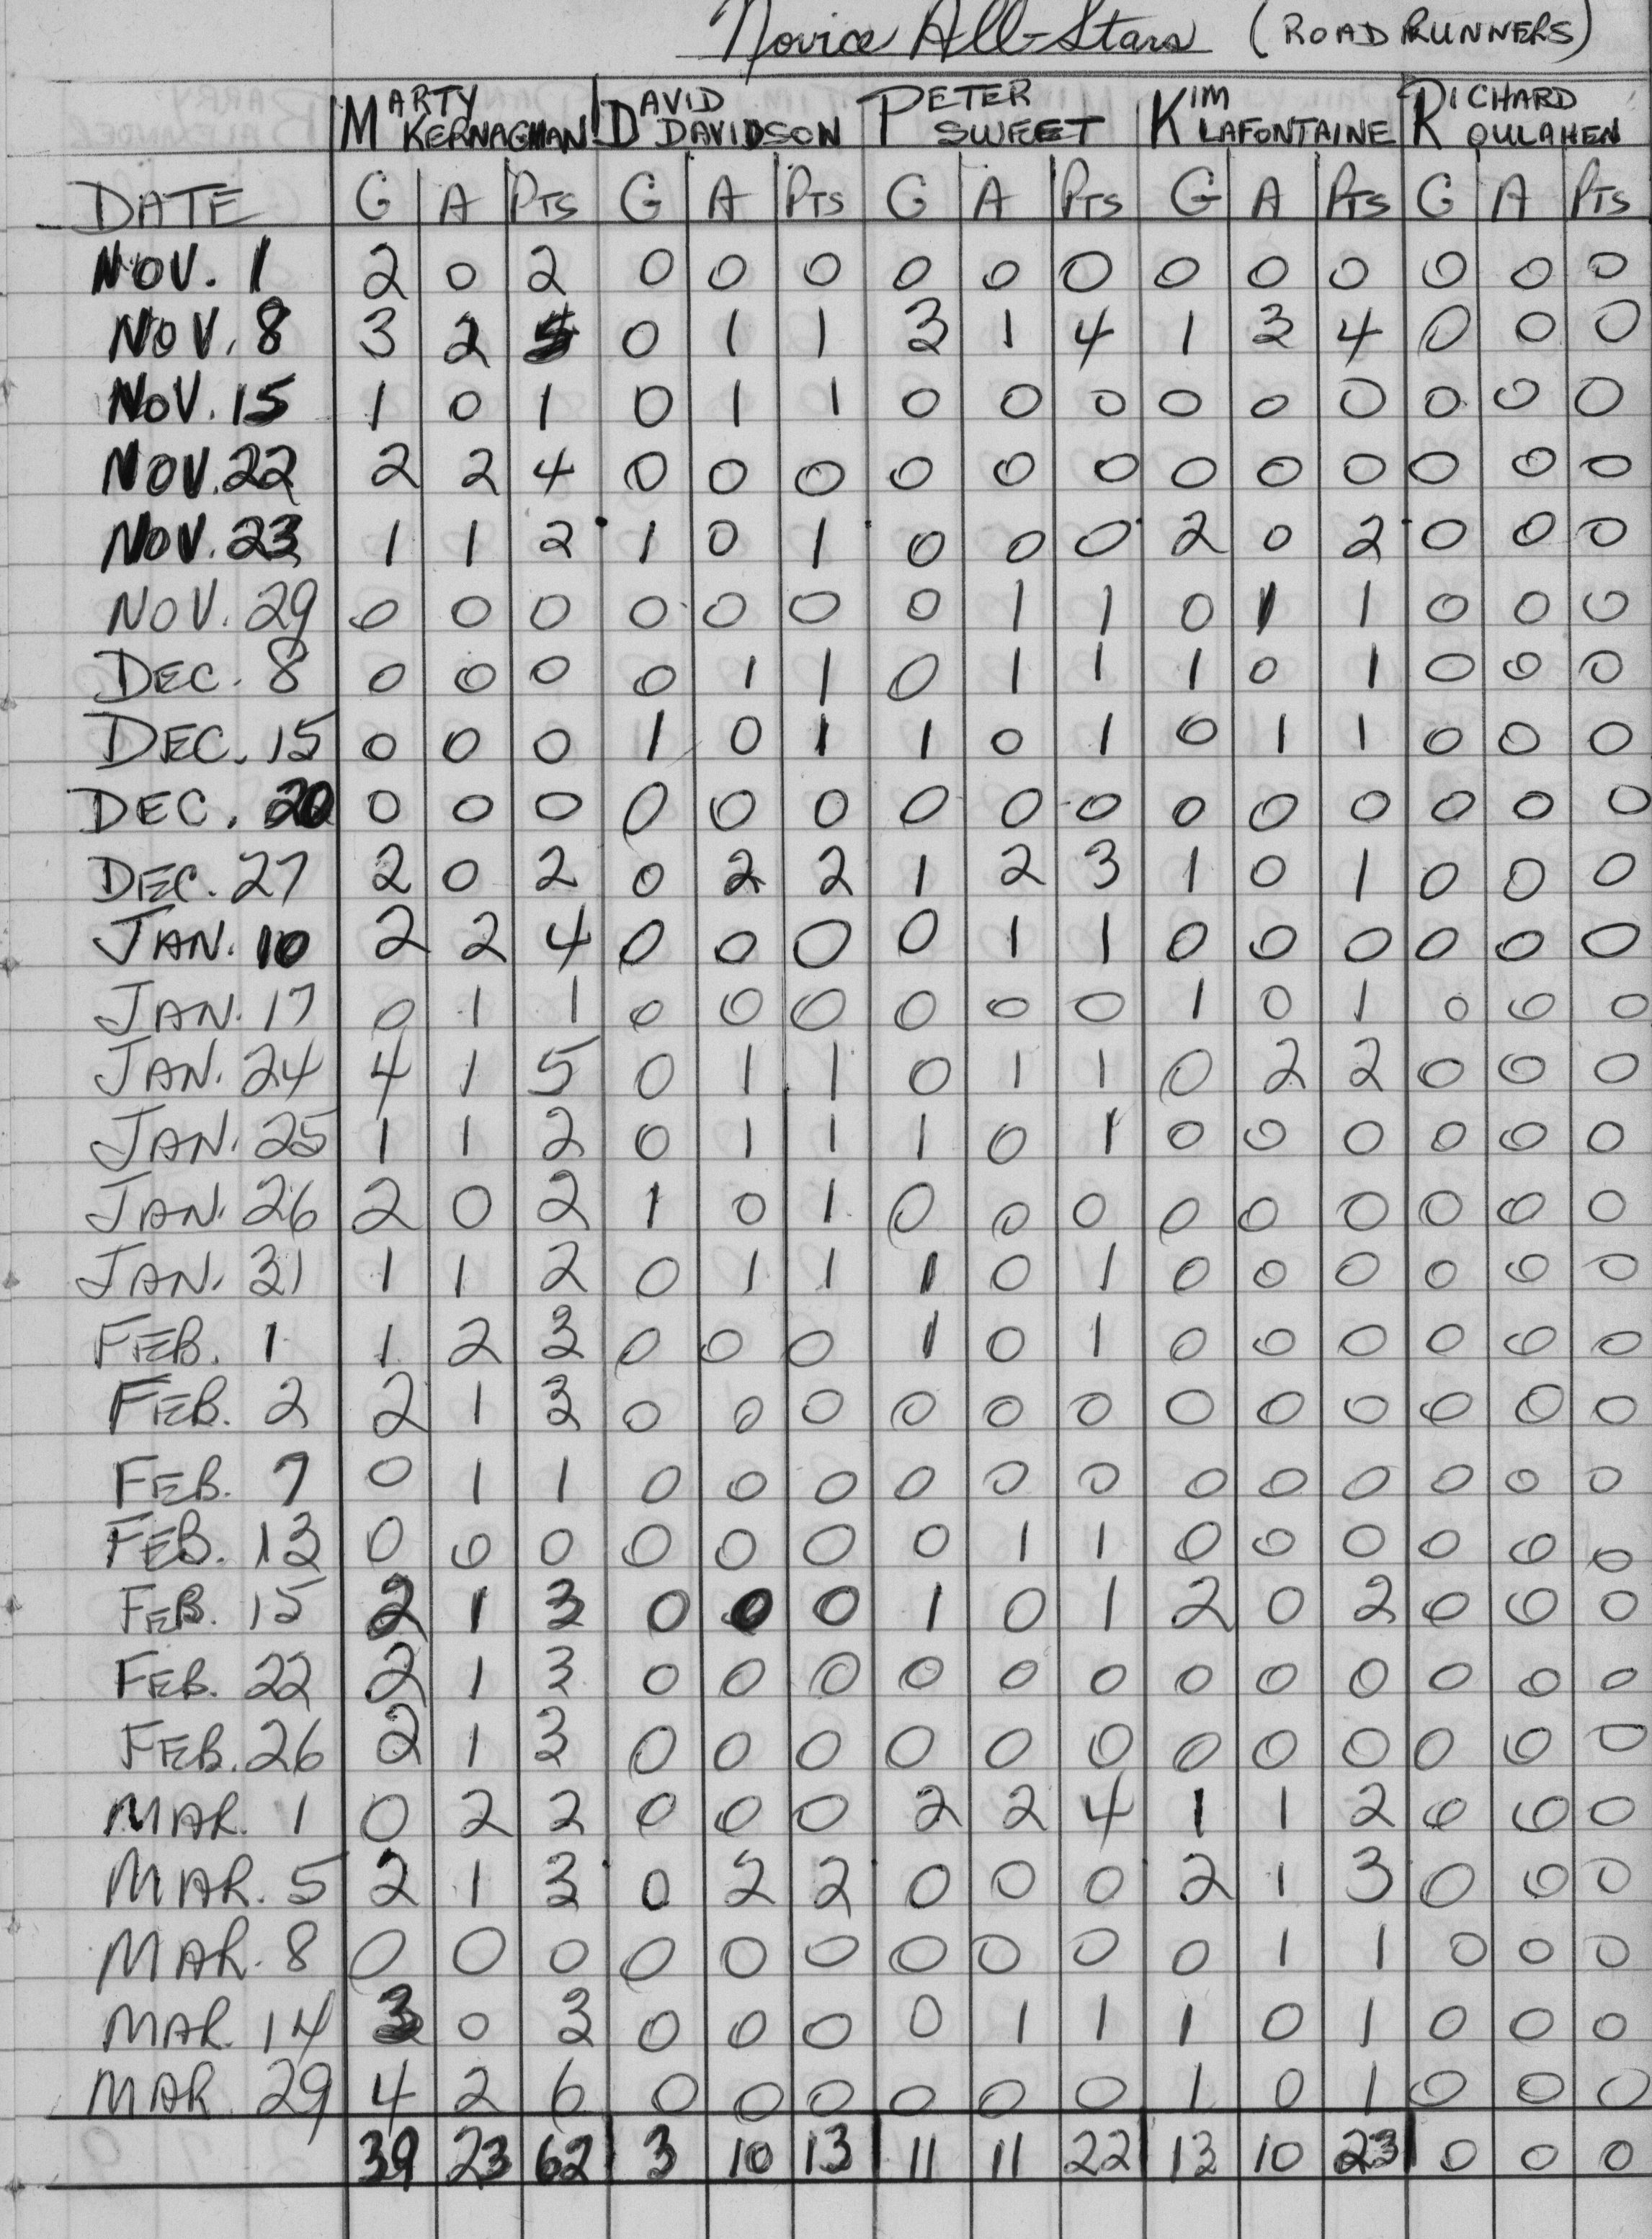 Novice All-Stars (ROAD RUNNERS)
MARTY KERNAGHAN DAVID DAVIDSON PETER SWEET KIM LAFONTAINE RICHARD OULAHEN
DATE G A PTS G A PTS G A PTS G A PTS G A PTS
NOV. 1 2 0 2 0 0 0 0 0 0 0 0 0 0 0 0
NOV. 8 3 2 5 0 1 1 3 1 4 1 3 4 0 0 0
NOV. 15 1 0 1 0 1 1 0 0 0 0 0 0 0 0 0
NOV. 22 2 2 4 0 0 0 0 0 0 0 0 0 0 0 0
NOV. 23 1 1 2 1 0 1 0 0 0 2 0 2 0 0 0
NOV. 29 0 0 0 0 0 0 0 1 1 0 1 1 0 0 0
DEC. 8 0 0 0 0 1 1 0 1 1 1 0 1 0 0 0
DEC. 15 0 0 0 1 0 1 1 0 1 0 1 1 0 0 0
DEC. 20 0 0 0 0 0 0 0 0 0 0 0 0 0 0 0
DEC. 27 2 0 2 0 2 2 1 2 3 1 0 1 0 0 0
JAN. 10 2 2 4 0 0 0 0 1 1 0 0 0 0 0 0
JAN. 17 0 1 1 0 0 0 0 0 0 1 0 1 0 0 0
JAN. 24 4 1 5 0 1 1 0 1 1 0 2 2 0 0 0
JAN. 25 1 1 2 0 1 1 1 0 1 0 0 0 0 0 0
JAN. 26 2 0 2 1 0 1 0 0 0 0 0 0 0 0 0
JAN. 31 1 1 2 0 1 1 1 0 1 0 0 0 0 0 0
FEB. 1 1 2 3 0 0 0 1 0 1 0 0 0 0 0 0
FEB. 2 2 1 3 0 0 0 0 0 0 0 0 0 0 0 0
FEB. 7 0 1 1 0 0 0 0 0 0 0 0 0 0 0 0
FEB. 13 0 0 0 0 0 0 0 1 1 0 0 0 0 0 0
FEB. 15 2 1 3 0 0 0 1 0 1 2 0 2 0 0 0
FEB. 22 2 1 3 0 0 0 0 0 0 0 0 0 0 0 0
FEB. 26 2 1 3 0 0 0 0 0 0 0 0 0 0 0 0
MAR. 1 0 2 2 0 0 0 2 2 4 1 1 2 0 0 0
MAR. 5 2 1 3 0 2 2 0 0 0 2 1 3 0 0 0
MAR. 8 0 0 0 0 0 0 0 0 0 0 1 1 0 0 0
MAR. 14 3 0 3 0 0 0 0 1 1 1 0 1 0 0 0
MAR. 29 4 2 6 0 0 0 0 0 0 1 0 1 0 0 0
39 23 62 3 10 13 11 11 22 13 10 23 0 0 0